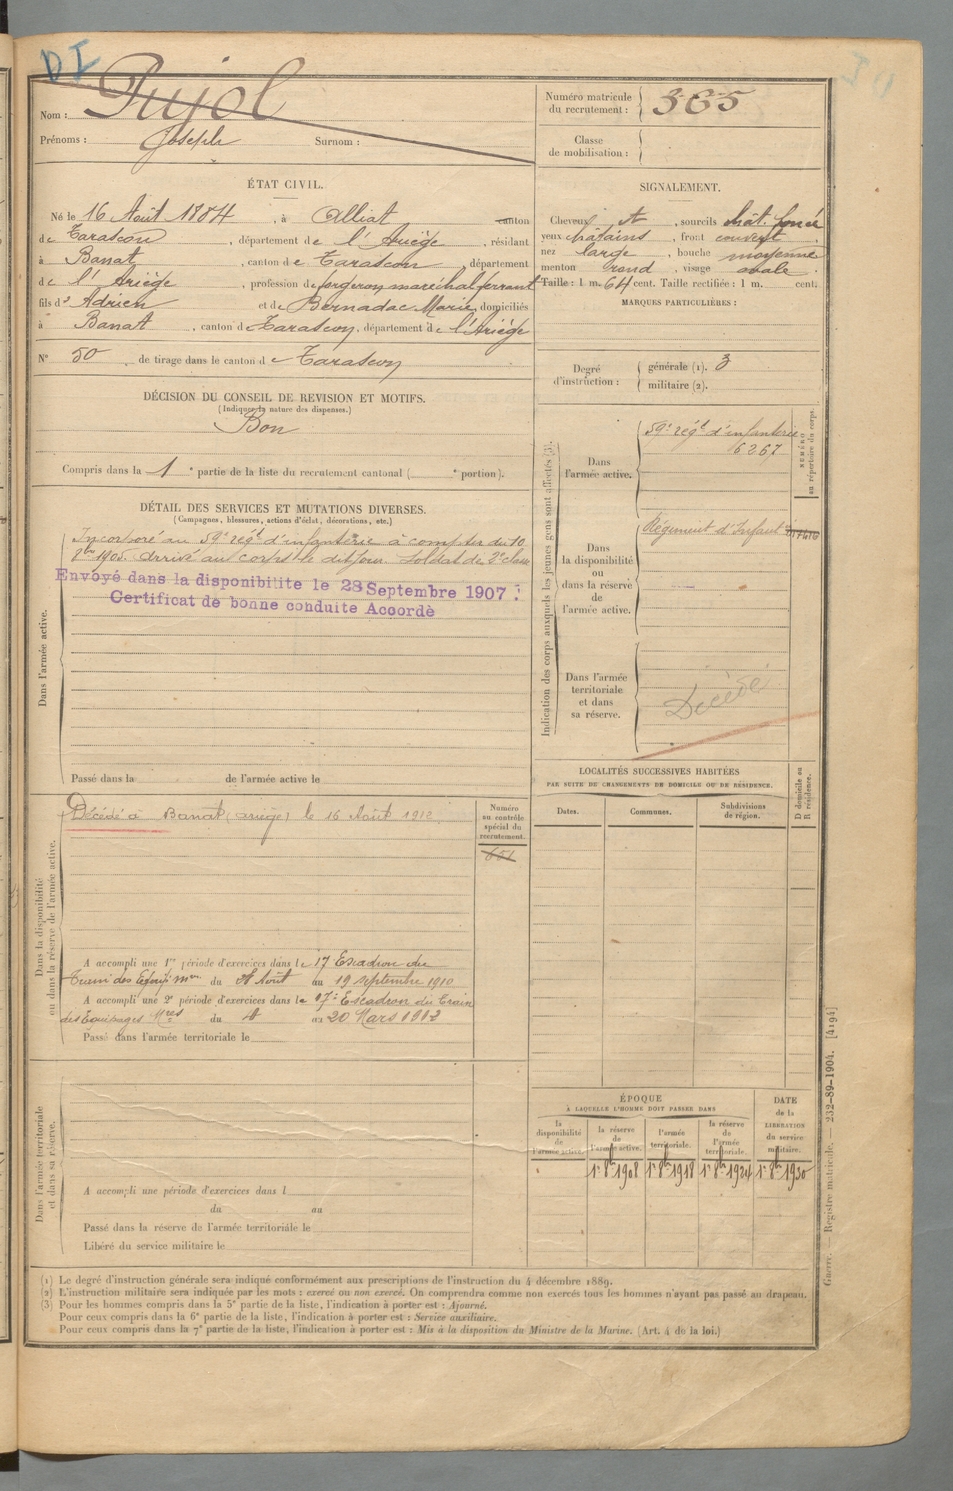 DI
Nom : Pujol
Prénoms : Joseph Surnom :
Numéro matricule du recrutement : 365
Classe de mobilisation :
ÉTAT CIVIL.
Né le 16 Août 1884, à Alliat canton
de Tarascon, département de l'Ariège, résidant
à Banat, canton de Tarascon, département
de l'Ariège, profession de forgeron maréchal ferrant
fils d' Adrien et de Bernadac Marie, domiciliés
à Banat, canton de Tarascon, département de l'Ariège
N° 50 de tirage dans le canton de Tarascon
SIGNALEMENT.
Cheveux et, sourcils chât. foncé
yeux châtains, front couvert,
nez large, bouche moyenne
menton rond, visage ovale.
Taille : 1 m. 64 cent. Taille rectifiée : 1 m. cent.
MARQUES PARTICULIÈRES :
Degré d'instruction :
générale (1). 3
militaire (2).
DÉCISION DU CONSEIL DE REVISION ET MOTIFS.
(Indiquer la nature des dispenses.)
Bon
Compris dans la 1e partie de la liste du recrutement cantonal ( e portion).
DÉTAIL DES SERVICES ET MUTATIONS DIVERSES.
(Campagnes, blessures, actions d'éclat, décorations, etc.)
Dans l'armée active.
Incorporé au 59e régt d'infanterie à compter du 10
8bre 1905. Arrivé au corps le dit jour. Soldat de 2e classe
Envoyé dans la disponibilite le 28 Septembre 1907 :
Certificat de bonne conduite Accordè
Passé dans la de l'armée active le
Indication des corps auxquels les jeunes gens sont affectés (3).
NUMÉRO au répertoire du corps.
Dans l'armée active.
59e régt d'infanterie
6267
Dans la disponibilité ou dans la réserve de l'armée active.
Régiment d'Infant
Dans l'armée territoriale et dans sa réserve.
Décédé
Dans la disponibilité ou dans la réserve de l'armée active.
Décédé à Banat (Ariège) le 16 Août 1912
Numéro au contrôle spécial du recrutement.
651
A accompli une 1re période d'exercices dans le 17 Escadron du
Train des Equip. mres du 28 Août au 19 septembre 1910
A accompli une 2e période d'exercices dans le 17e Escadron du Train
des Equipages Mres du 4 au 20 Mars 1912
Passé dans l'armée territoriale le
LOCALITÉS SUCCESSIVES HABITÉES
PAR SUITE DE CHANGEMENTS DE DOMICILE OU DE RÉSIDENCE.
D domicile ou R résidence.
Dates. Communes. Subdivisions de région.
Dans l'armée territoriale et dans sa réserve.
A accompli une période d'exercices dans l
du au
Passé dans la réserve de l'armée territoriale le
Libéré du service militaire le
ÉPOQUE
À LAQUELLE L'HOMME DOIT PASSER DANS
DATE de la LIBÉRATION du service militaire.
la disponibilité de l'armée active.
la réserve de l'armée active.
l'armée territoriale.
la réserve de l'armée territoriale.
1er 8bre 1908 1er 8bre 1918 1er 8bre 1924 1er 8bre 1930
Guerre. — Registre matricule. — 232-89-1904. [4194]
(1) Le degré d'instruction générale sera indiqué conformément aux prescriptions de l'instruction du 4 décembre 1889.
(2) L'instruction militaire sera indiquée par les mots : exercé ou non exercé. On comprendra comme non exercés tous les hommes n'ayant pas passé au drapeau.
(3) Pour les hommes compris dans la 5e partie de la liste, l'indication à porter est : Ajourné.
Pour ceux compris dans la 6e partie de la liste, l'indication à porter est : Service auxiliaire.
Pour ceux compris dans la 7e partie de la liste, l'indication à porter est : Mis à la disposition du Ministre de la Marine. (Art. 4 de la loi.)